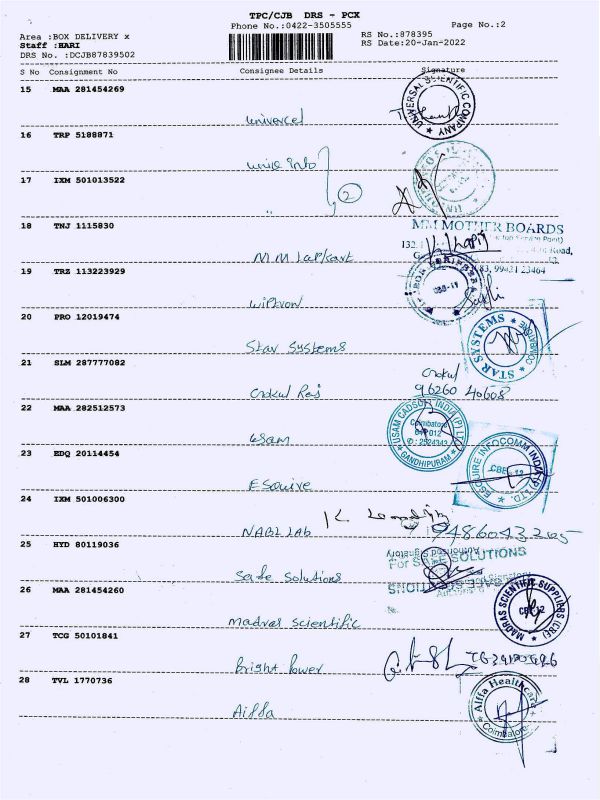 TPC/CJB DRS - PCX
Phone No.:0422-3505555 Page No.:2
Area :BOX DELIVERY x RS No.:878395
Staff :HARI RS Date:20-Jan-2022
DRS No. :DCJB87839502
S No Consignment No Consignee Details Signature
15 MAA 281454269
univercel
UNIVERSAL SCIENTIFIC COMPANY
16 TRP 5188871
unie info
17 IXM 501013522
" 2
18 TNJ 1115830
MM MOTHER BOARDS
132,
Road,
83, 99421 23464
M M Lapkart
19 TRZ 113223929
wiptron
20 PRO 12019474
Star Systems
STAR SYSTEMS
COIMBATORE
21 SLM 287777082
Gokul
Gokul Raj 96260 40608
22 MAA 282512573
usam
USAM CADSON INDIA (P) LTD
Coimbatore
641 012
GANDHIPURAM
23 EDQ 20114454
Esquire
ESQUIRE INFOCOMM INDIA (P) LTD.
24 IXM 501006300
NABL Lab
25 HYD 80119036
Authorised Signatory
For SAFE SOLUTIONS
Safe Solutions
26 MAA 281454260
Madras Scientific
MADRAS SCIENTIFIC SUPPLIERS (CBE)
27 TCG 50101841
Bright Power
28 TVL 1770736
Aiffa
Aiffa Healthcare
Coimbatore